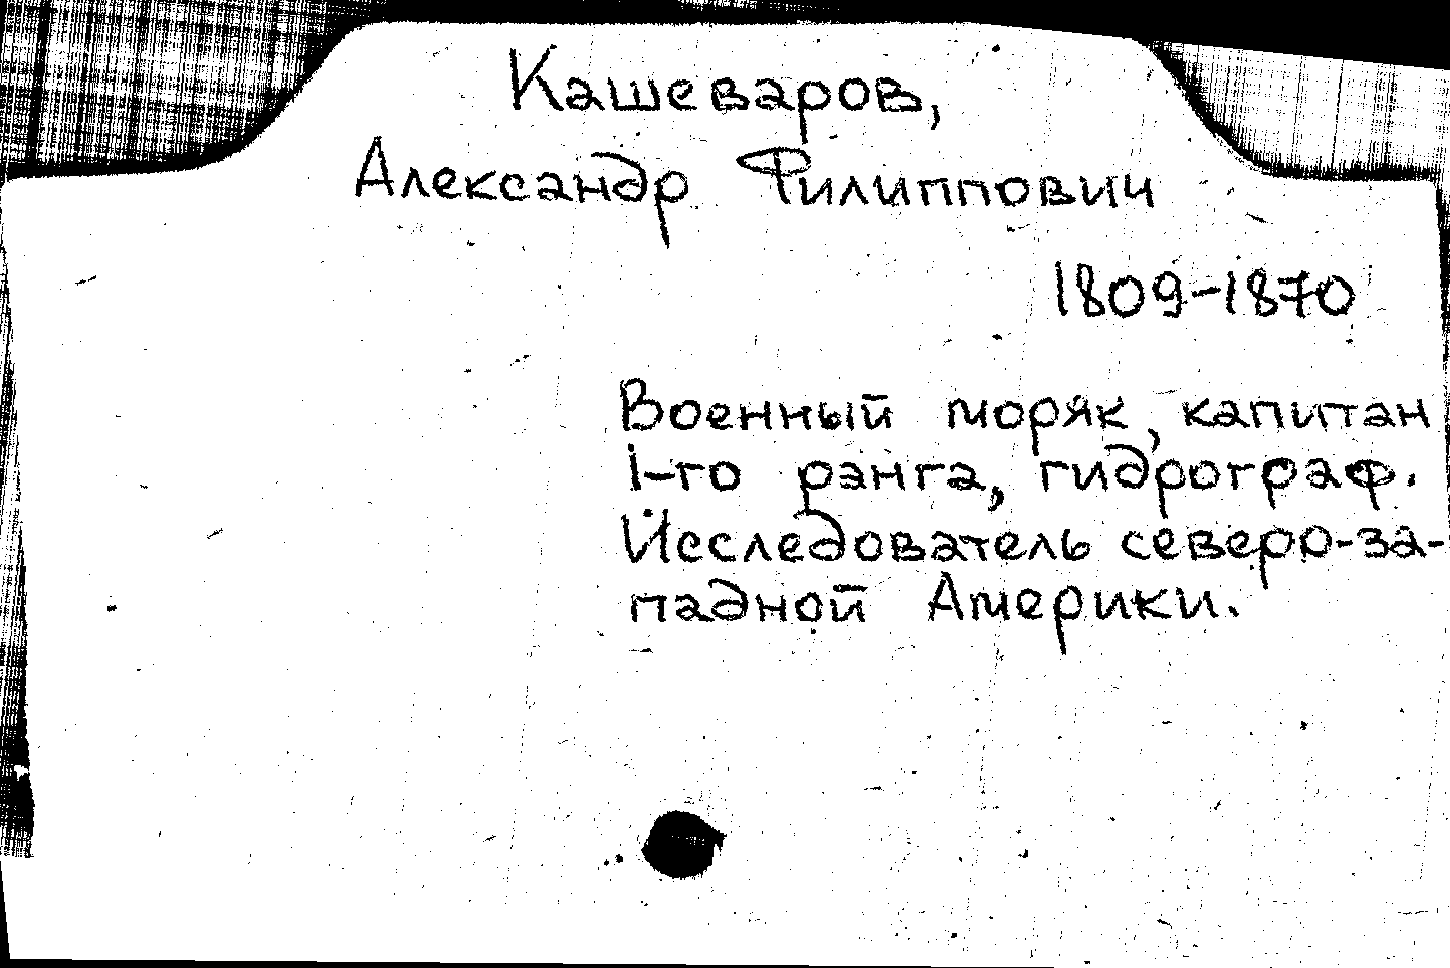 Кашеваров,
Александр Филиппович
1809-1870
Военный моряк, капитан
1-го ранга, гидрограф.
Исследователь северо-за-
падной Америки.